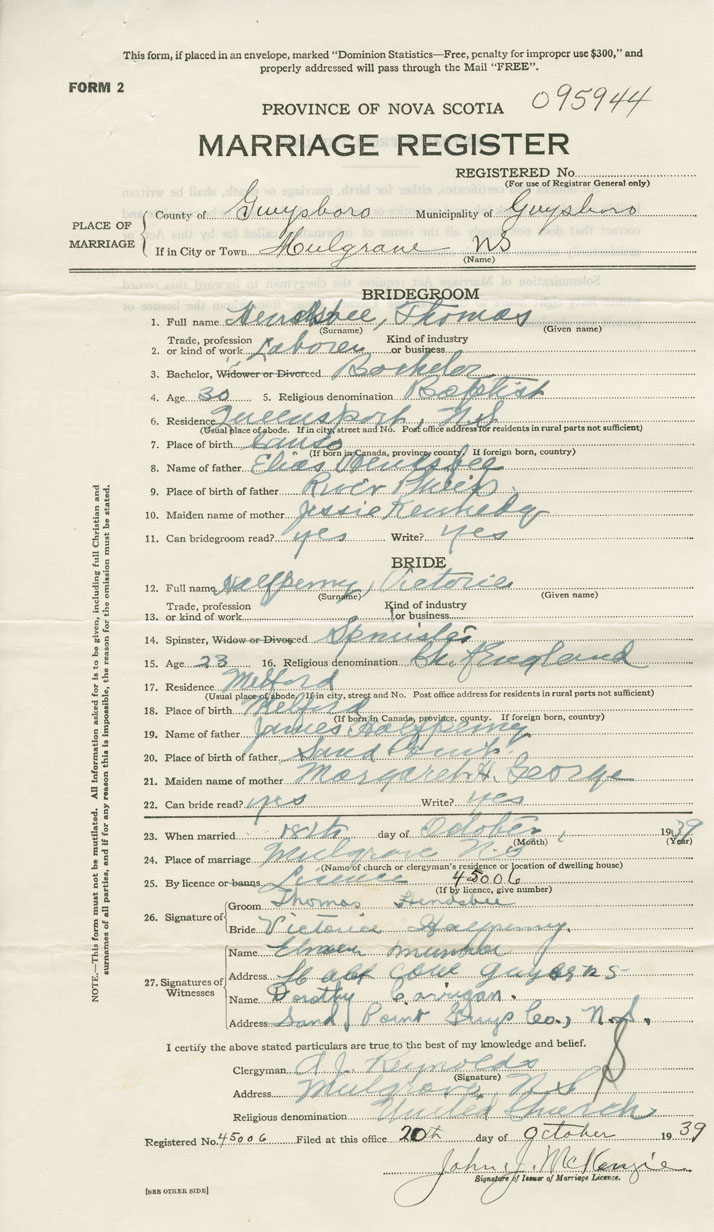 This form, if placed in an envelope, marked "Dominion Statistics—Free, penalty for improper use $300," and
properly addressed will pass through the Mail "FREE".
FORM 2
095944
PROVINCE OF NOVA SCOTIA
MARRIAGE REGISTER
REGISTERED No.
(For use of Registrar General only)
PLACE OF MARRIAGE
County of Guysboro Municipality of Guysboro
If in City or Town Mulgrave NS
(Name)
BRIDEGROOM
1. Full name Hendsbee, Thomas
(Surname) (Given name)
Trade, profession Kind of industry
2. or kind of work Laborer or business
3. Bachelor, Widower or Divorced Bachelor
4. Age 30 5. Religious denomination Baptist
6. Residence Queensport, N.S
(Usual place of abode. If in city, street and No. Post office address for residents in rural parts not sufficient)
7. Place of birth Canso
(If born in Canada, province, county. If foreign born, country)
8. Name of father Elias Hendsbee
9. Place of birth of father River Philip
10. Maiden name of mother Jessie Kennedy
11. Can bridegroom read? yes Write? yes
BRIDE
12. Full name Halfpenny, Victoria
(Surname) (Given name)
Trade, profession Kind of industry
13. or kind of work or business
14. Spinster, Widow or Divorced Spinster
15. Age 23 16. Religious denomination Ch. of England
17. Residence Melford
(Usual place of abode. If in city, street and No. Post office address for residents in rural parts not sufficient)
18. Place of birth Melford
(If born in Canada, province, county. If foreign born, country)
19. Name of father James Halfpenny
20. Place of birth of father Sand Point
21. Maiden name of mother Margaret H. George
22. Can bride read? yes Write? yes
23. When married 18th day of October, 1939
(Month) (Year)
24. Place of marriage Mulgrave N.S
(Name of church or clergyman's residence or location of dwelling house)
25. By licence or banns Licence 45006
(If by licence, give number)
26. Signature of
Groom Thomas Hendsbee
Bride Victoria Halfpenny.
27. Signatures of Witnesses
Name
Address Cove Guys NS
Name Dorothy Carrigan.
Address Sand Point Guys Co., N.S.
I certify the above stated particulars are true to the best of my knowledge and belief.
Clergyman A.J. Reynolds
(Signature)
Address Mulgrave, N.S
Religious denomination United Church
Registered No. 45006 Filed at this office 20th day of October 1939
John J. McKenzie
Signature of Issuer of Marriage Licence.
[SEE OTHER SIDE]
NOTE.—This form must not be mutilated. All Information asked for is to be given, including full Christian and
surnames of all parties, and if for any reason this is impossible, the reason for the omission must be stated.